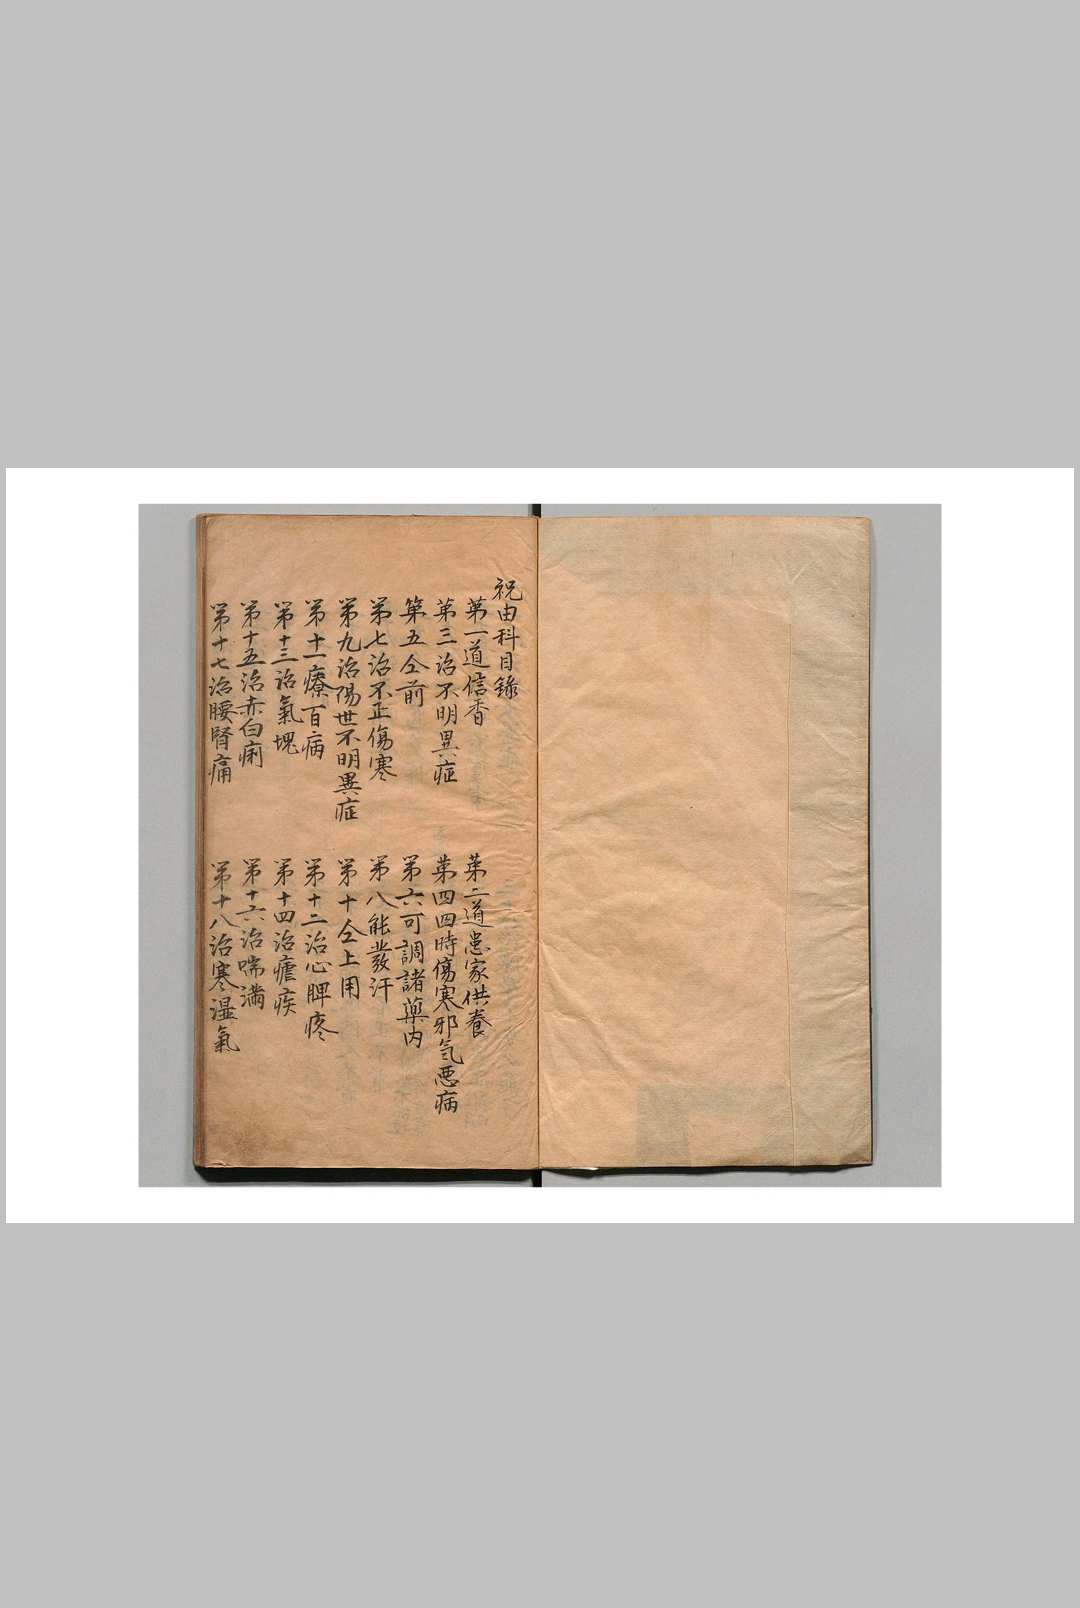 祝由科目錄
第一道信香
第二道患家供養
第三治不明異症
第四四時傷寒邪氣惡病
第五仝前
第六可調諸藥内
第七治不正傷寒
第八能發汗
第九治陽世不明異症
第十仝上用
第十一療百病
第十二治心脾疼
第十三治氣塊
第十四治瘧疾
第十五治赤白痢
第十六治喘滿
第十七治腰腎痛
第十八治寒湿氣